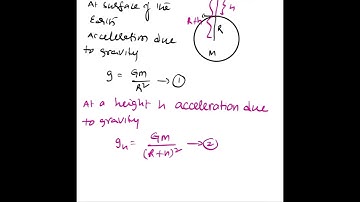 At surface of the
Earth
Acceleration due
to gravity
g = GM/R² → ①
At a height h acceleration due
to gravity
gₕ = GM/(R+h)² → ②
R+h
h
R
M